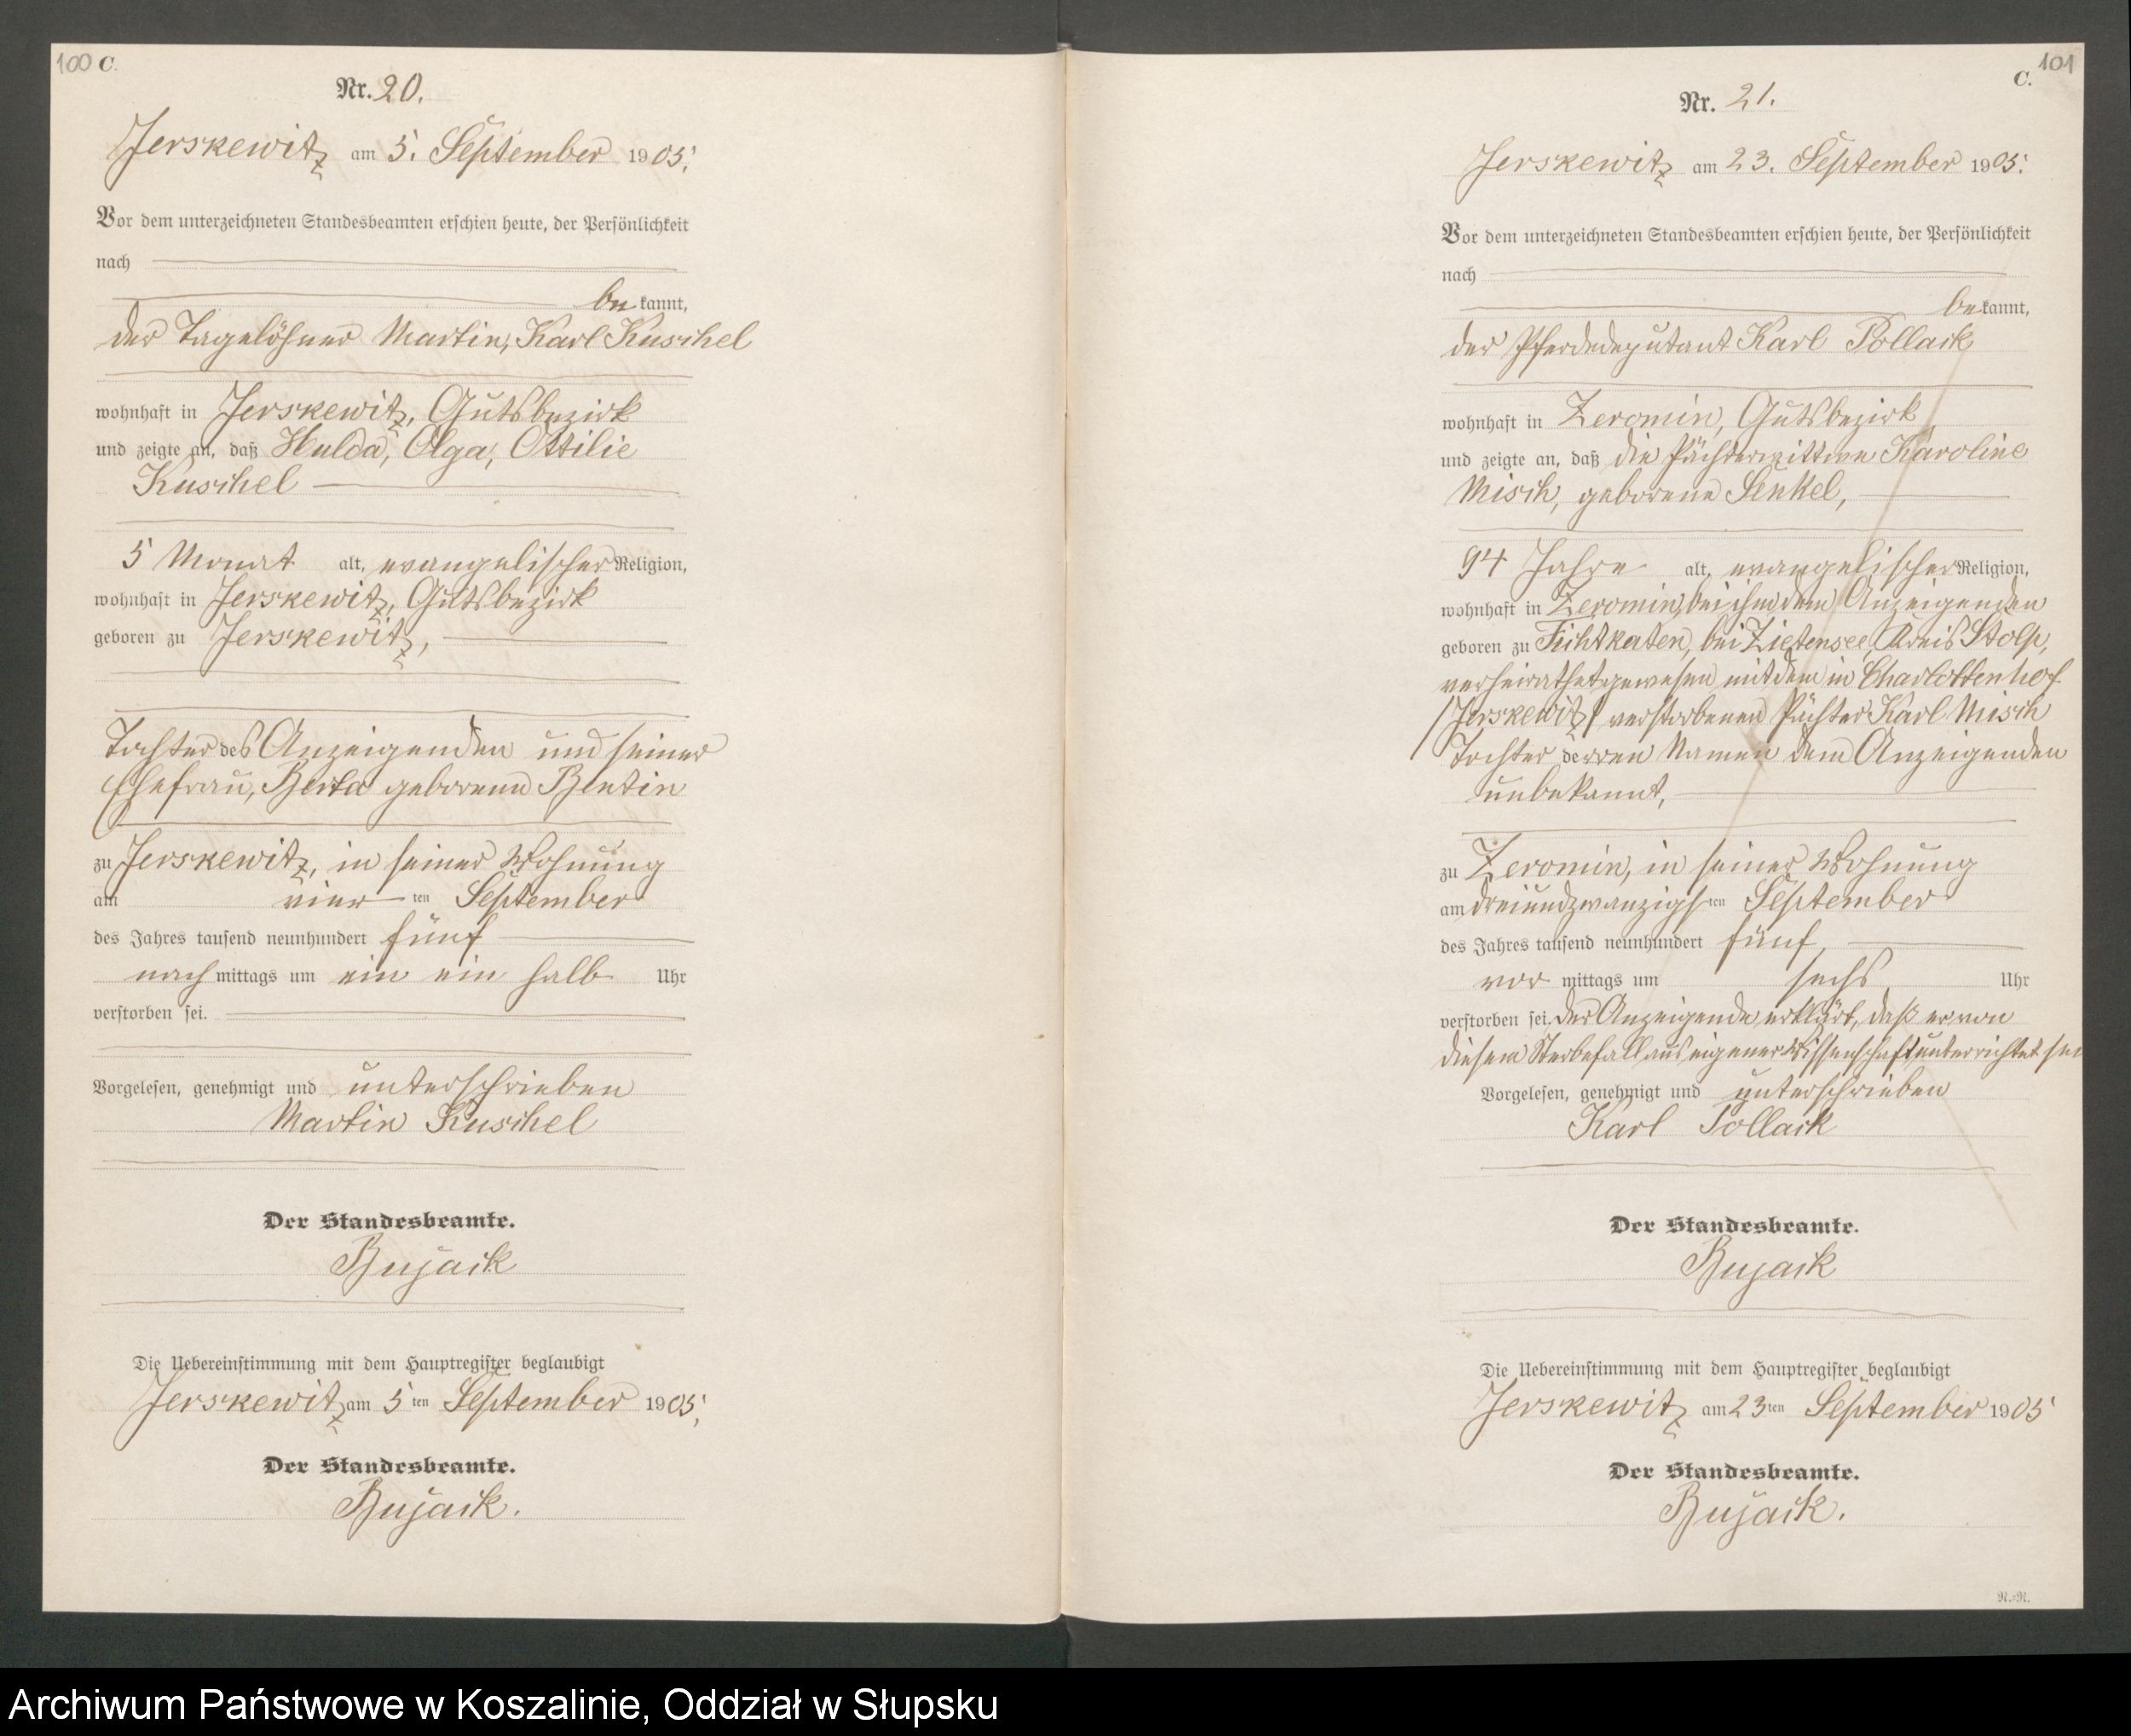 100 C.
Nr. 20.
Jerskewitz am 5. September 1905.
Vor dem unterzeichneten Standesbeamten erschien heute, der Persönlichkeit
nach
bekannt,
der Tagelöhner Martin, Karl Kuschel
wohnhaft in Jerskewitz, Gutsbezirk
und zeigte an, daß Hulda, Olga, Ottilie
Kuschel
5 Monat alt, evangelischer Religion,
wohnhaft in Jerskewitz, Gutsbezirk
geboren zu Jerskewitz,
Tochter des Anzeigenden und seiner
Ehefrau, Berta geborene Bentin
zu Jerskewitz, in seiner Wohnung
am vier ten September
des Jahres tausend neunhundert fünf
nachmittags um ein ein halb Uhr
verstorben sei.
Vorgelesen, genehmigt und unterschrieben
Martin Kuschel
Der Standesbeamte.
Bujack
Die Uebereinstimmung mit dem Hauptregister beglaubigt
Jerskewitz am 5 ten September 1905.
Der Standesbeamte.
Bujack.
101
C.
Nr. 21.
Jerskewitz am 23. September 1905.
Vor dem unterzeichneten Standesbeamten erschien heute, der Persönlichkeit
nach
bekannt,
der Pferdedeputant Karl Pollack
wohnhaft in Zeromin, Gutsbezirk
und zeigte an, daß die Pächterwittwe Karoline
Misch, geborene Senkel,
94 Jahre alt, evangelischer Religion,
wohnhaft in Zeromin, bei ihm dem Anzeigenden
geboren zu Fichtkaten, bei Zietensee, Kreis Stolp,
verheirathet gewesen mit dem in Charlottenhof
/Jerskewitz/ verstorbenen Pächter Karl Misch
Tochter derren Namen dem Anzeigenden
unbekannt,
zu Zeromin, in seiner Wohnung
am dreiundzwanzigsten September
des Jahres tausend neunhundert fünf,
vor mittags um sechs Uhr
verstorben sei. Der Anzeigende erklärt, daß er von
diesem Sterbefall aus eigener Wissenschaft unterrichtet sei
Vorgelesen, genehmigt und unterschrieben
Karl Pollack
Der Standesbeamte.
Bujack
Die Uebereinstimmung mit dem Hauptregister beglaubigt
Jerskewitz am 23 ten September 1905
Der Standesbeamte.
Bujack.
N.=N.
Archiwum Państwowe w Koszalinie, Oddział w Słupsku